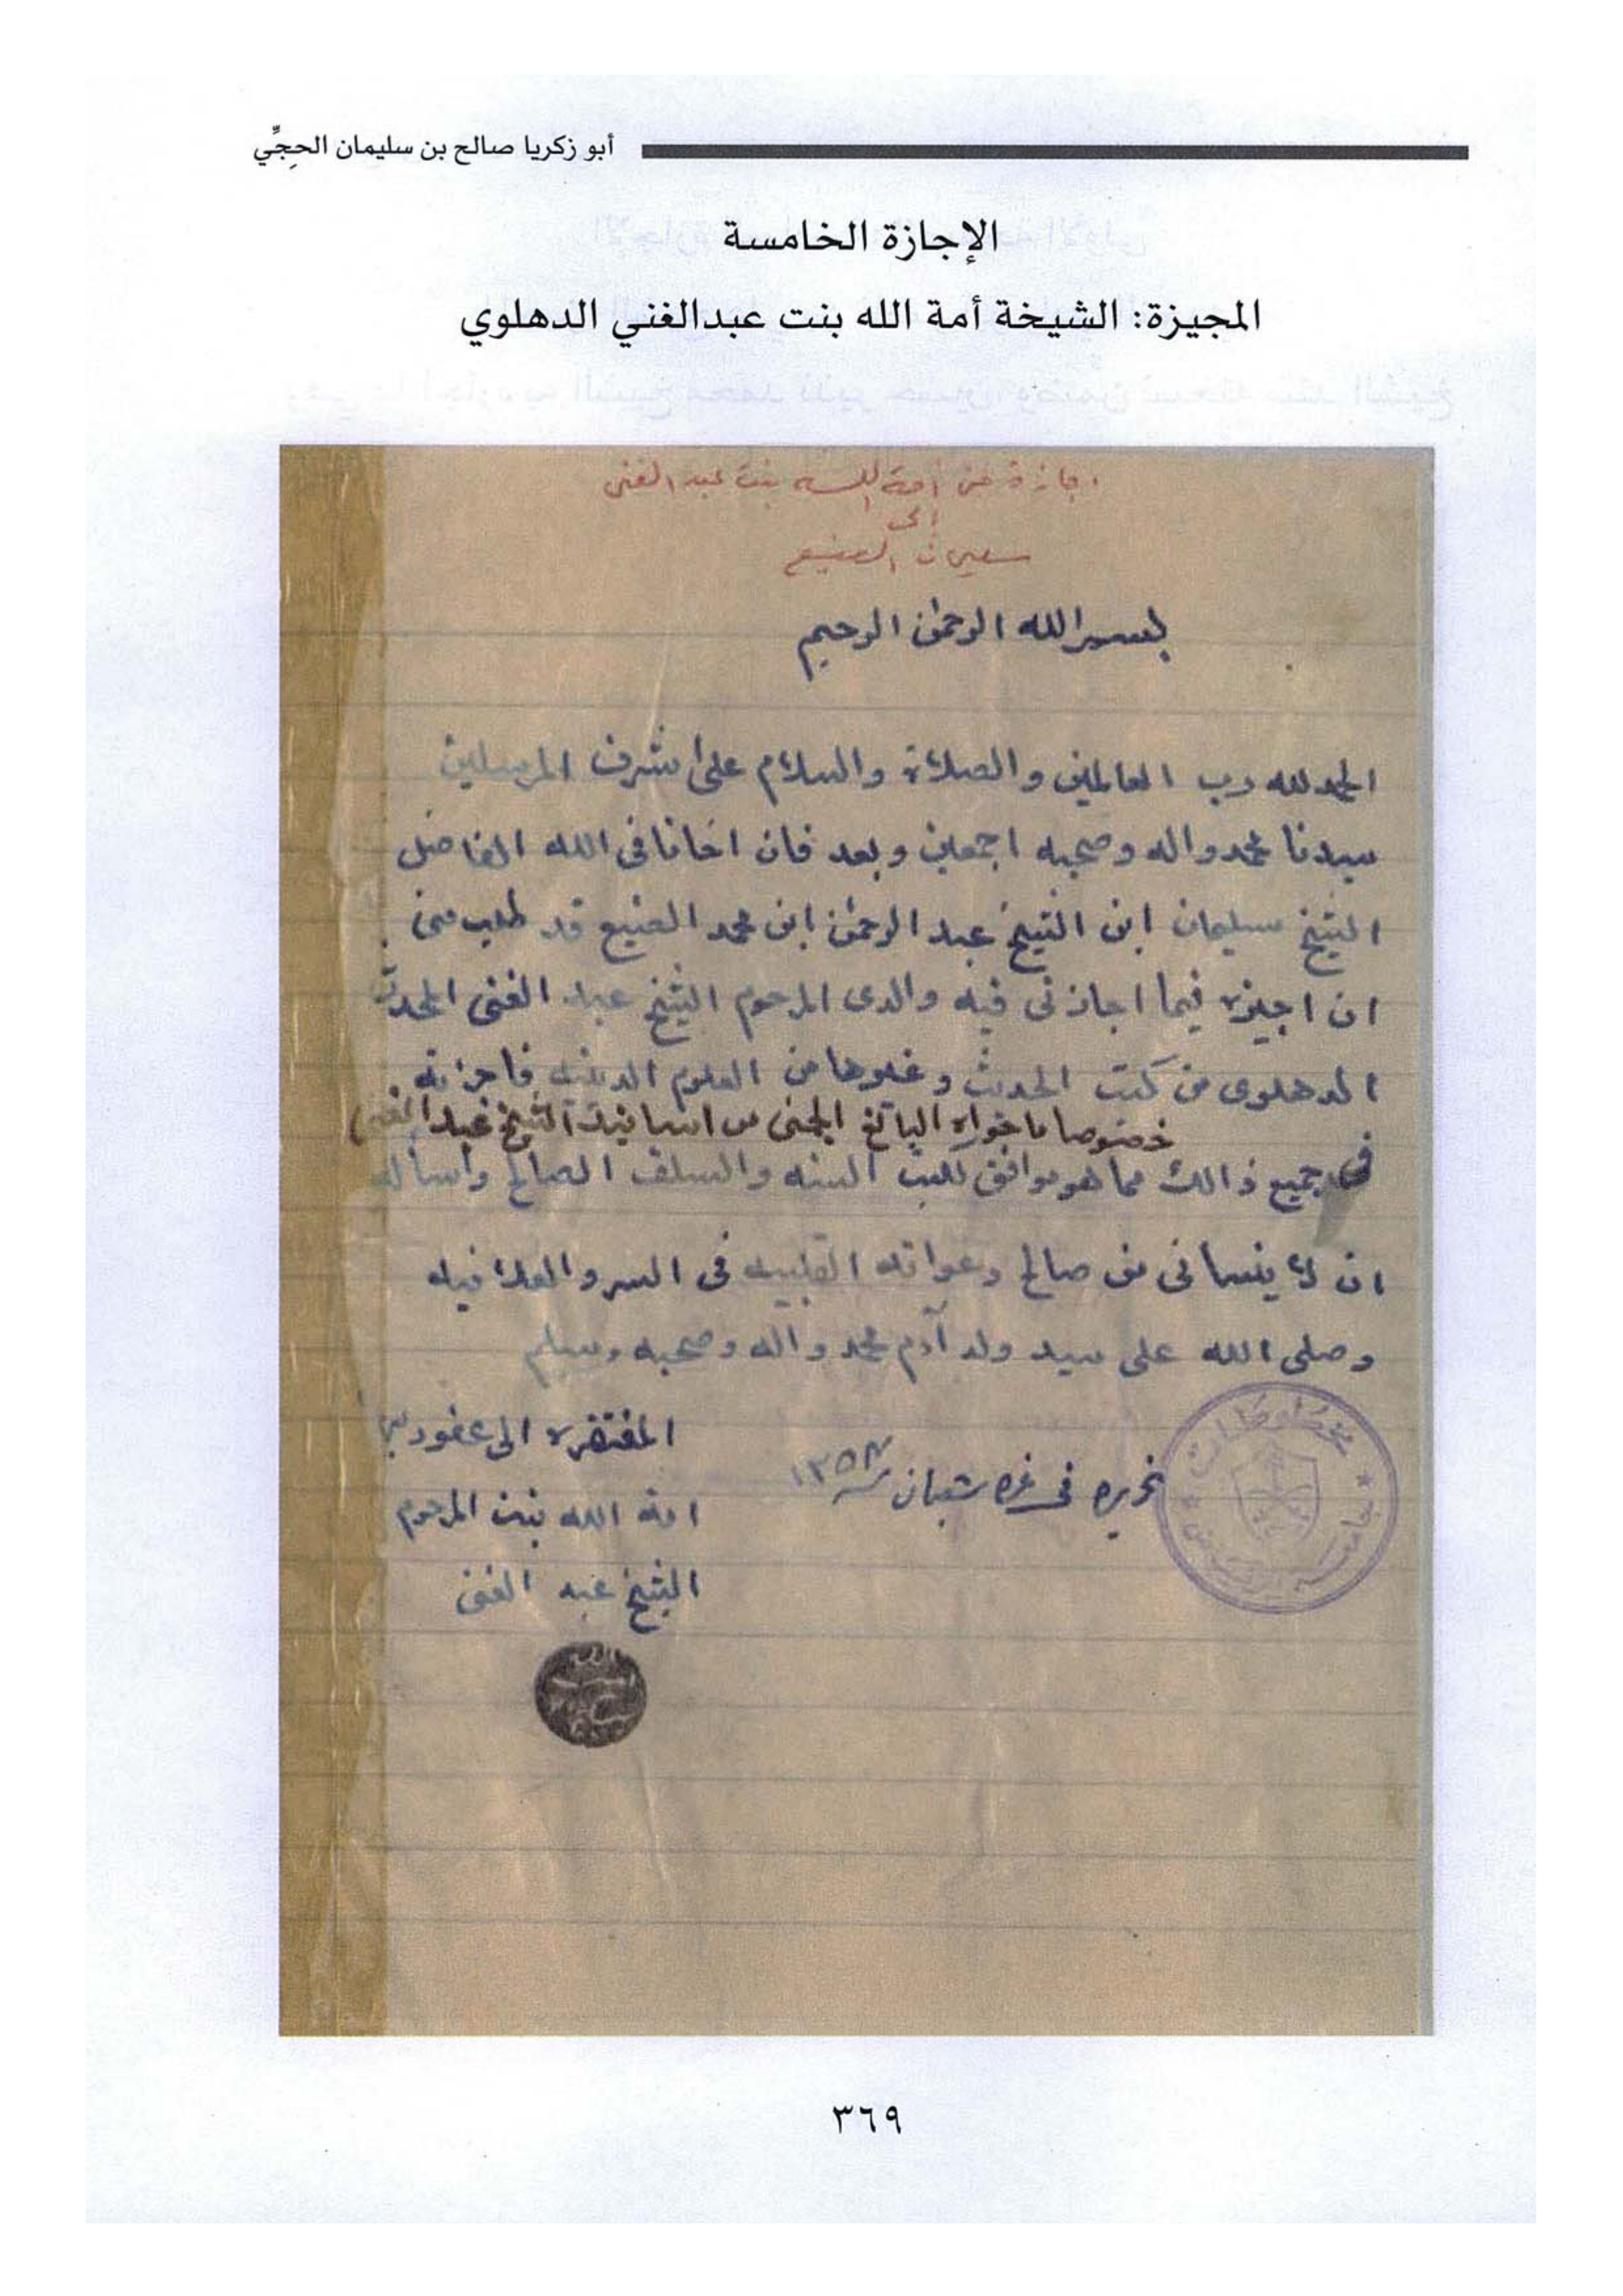 أبو زكريا صالح بن سليمان الحِجِّي
الإجازة الخامسة
المجيزة: الشيخة أمة الله بنت عبدالغني الدهلوي
اجازة من أمة الله بنت عبد الغني
إلى
سليمان الصنيع
بسم الله الرحمن الرحيم
الحمد لله رب العالمين والصلاة والسلام على اشرف المرسلين
سيدنا محمد واله وصحبه اجمعين وبعد فان اخانا في الله الفاضل
الشيخ سليمان ابن الشيخ عبد الرحمن ابن محمد الصنيع قد طلب مني
ان اجيزه فيما اجازني فيه والدي المرحوم الشيخ عبد الغني المحدث
الدهلوي من كتب الحديث وغيرها من العلوم الدينيه فاجزته
خصوصا ما حواه اليانع الجني من اسانيد الشيخ عبد الغني
في جميع ذالك مما هو موافق للكتب السنه والسلف الصالح واسأله
ان لا ينساني من صالح دعواته القلبيه في السر والعلانيه
وصلى الله على سيد ولد آدم محمد واله وصحبه وسلم
المفتقرة الى عفو ربها
تحريره في غره شعبان سنة ١٣٥٧
امة الله بنت المرحوم
الشيخ عبد الغني
مخطوطات
جامعة الرياض
٣٦٩